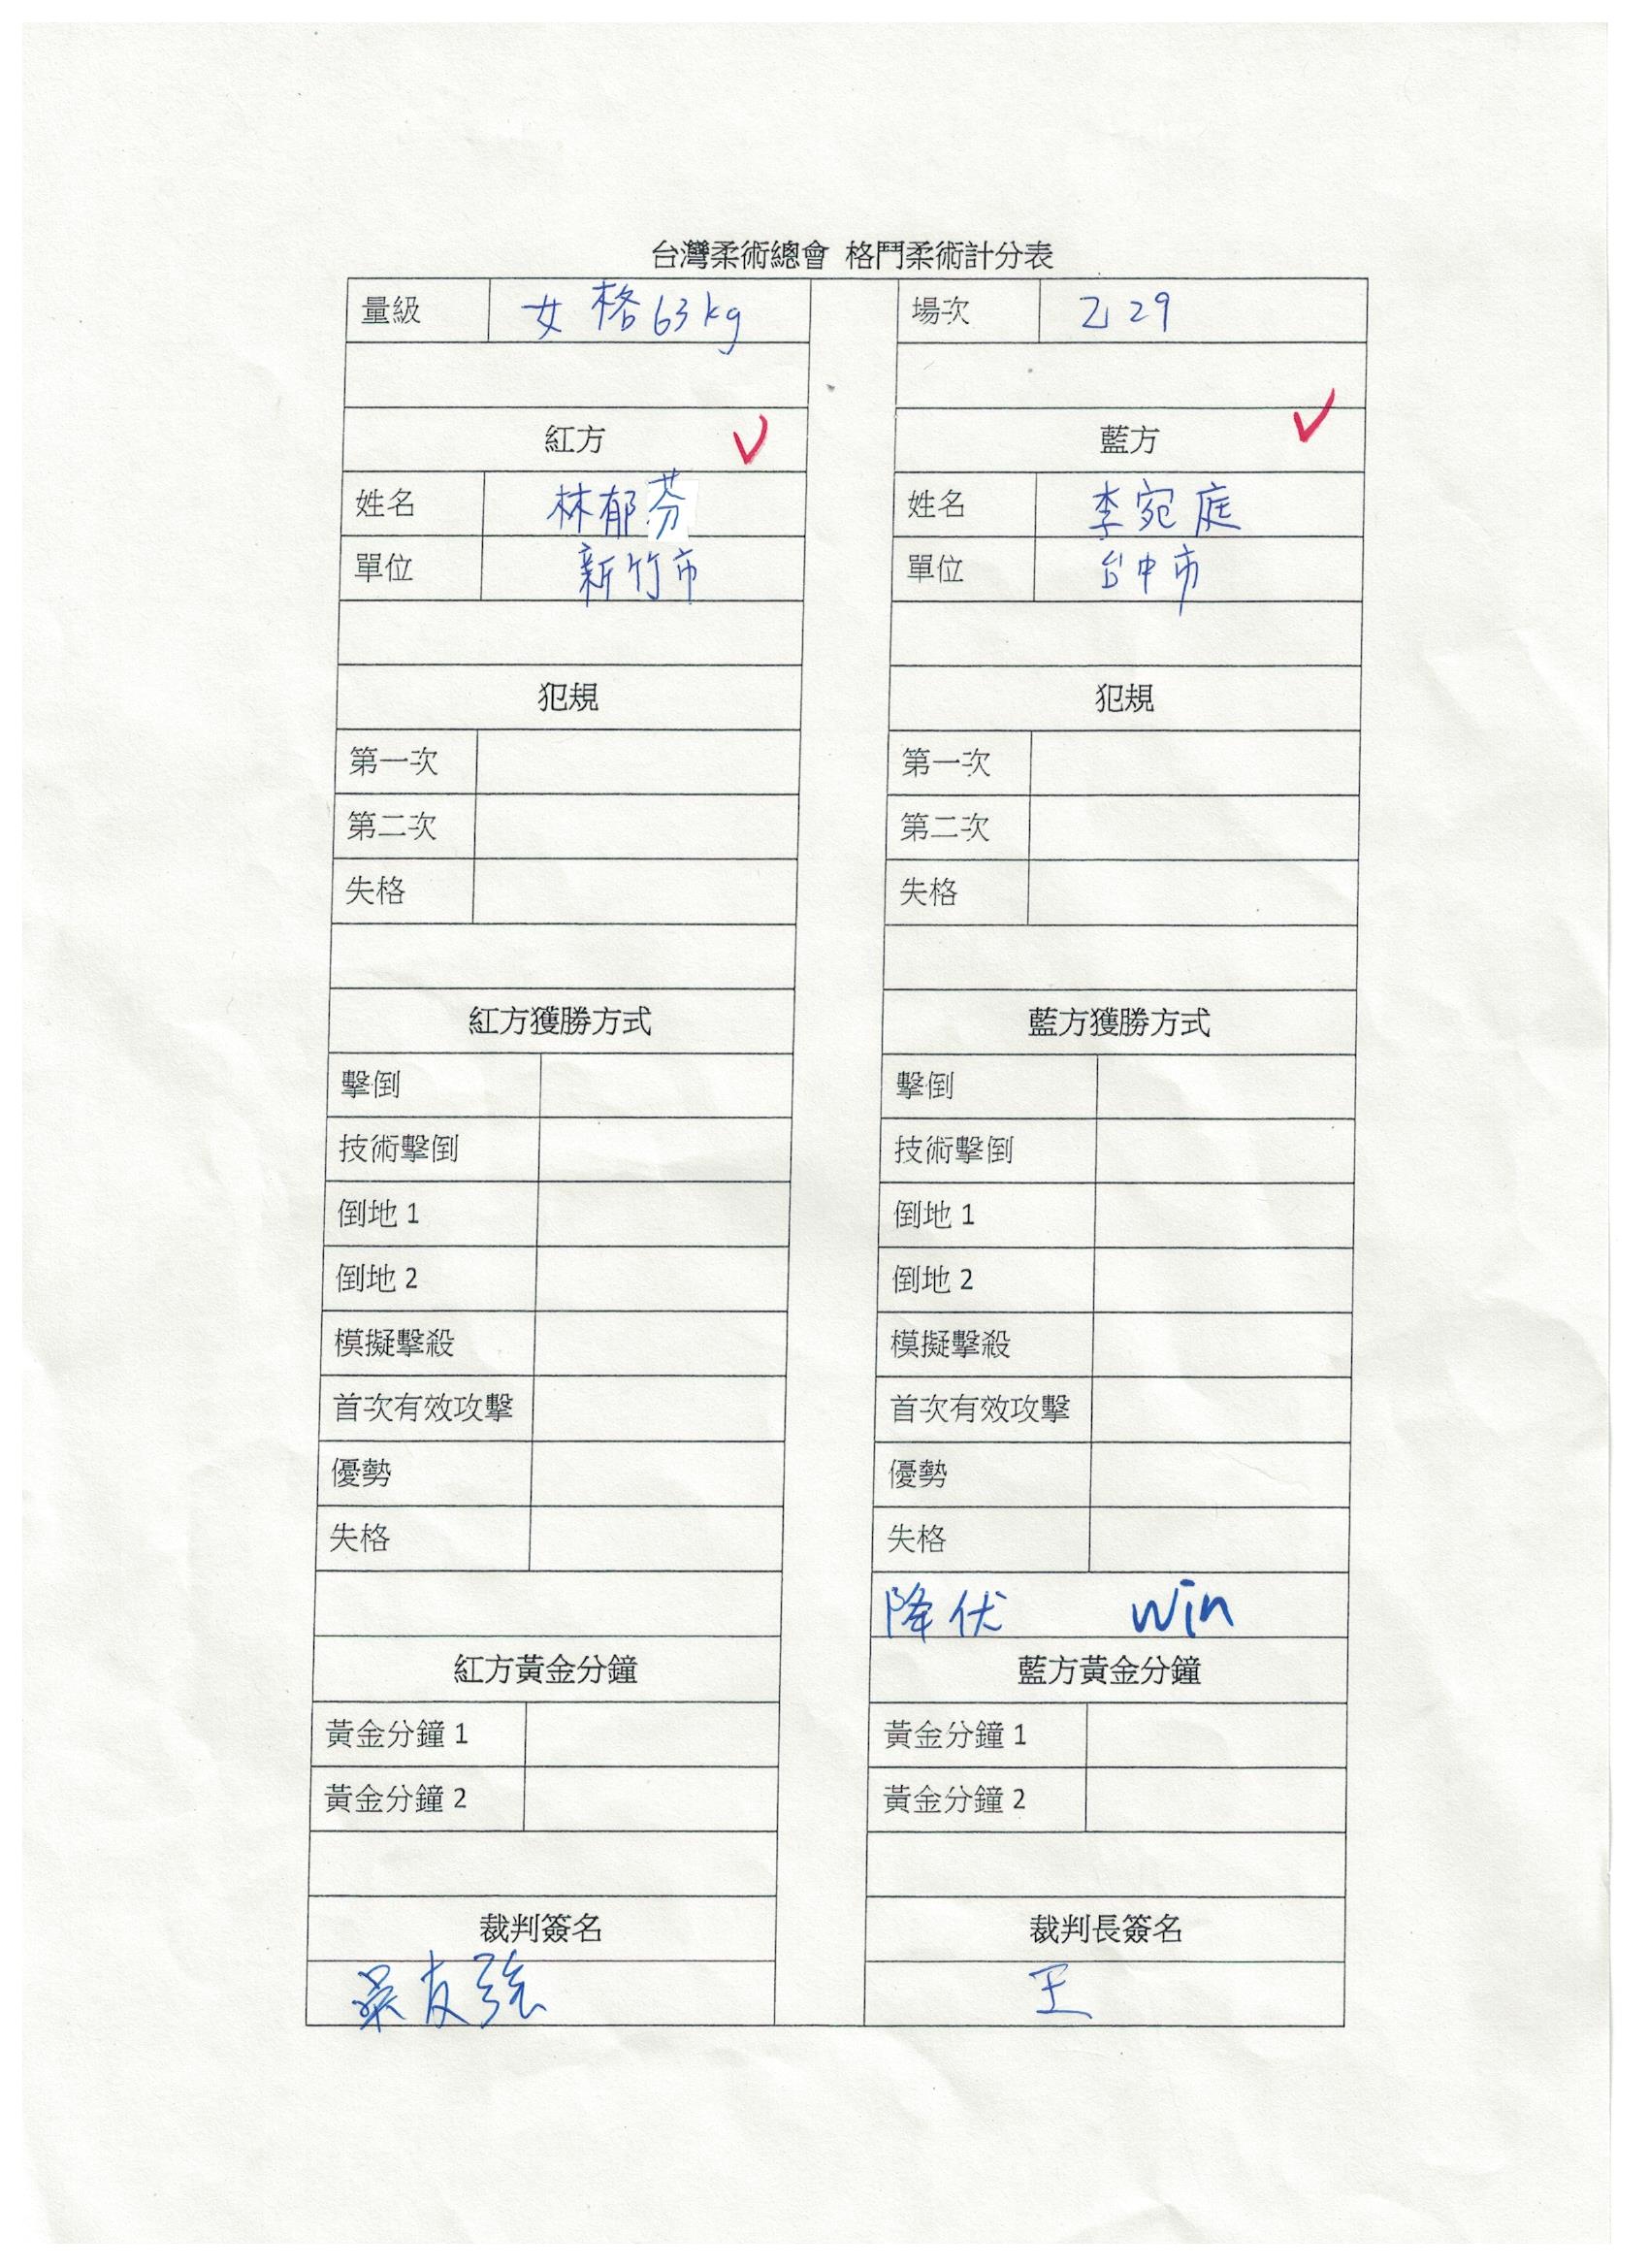 台灣柔術總會 格鬥柔術計分表
量級 女格63kg 場次 乙29
紅方 ✓ 藍方 ✓
姓名 林郁芬 姓名 李宛庭
單位 新竹市 單位 台中市
犯規 犯規
第一次 第一次
第二次 第二次
失格 失格
紅方獲勝方式 藍方獲勝方式
擊倒 擊倒
技術擊倒 技術擊倒
倒地 1 倒地 1
倒地 2 倒地 2
模擬擊殺 模擬擊殺
首次有效攻擊 首次有效攻擊
優勢 優勢
失格 失格
降伏 Win
紅方黃金分鐘 藍方黃金分鐘
黃金分鐘 1 黃金分鐘 1
黃金分鐘 2 黃金分鐘 2
裁判簽名 裁判長簽名
吳友強 王